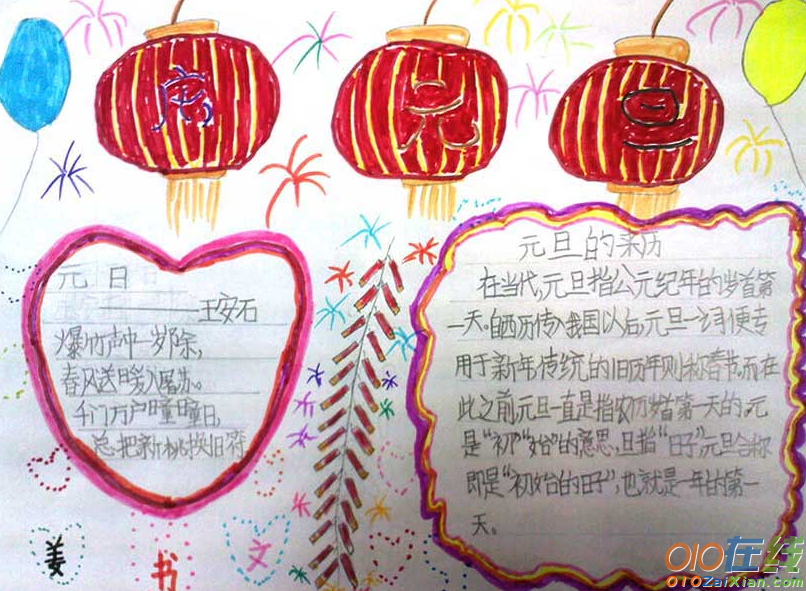 庆 元 旦
元 日
——王安石
爆竹声中一岁除,
春风送暖入屠苏。
千门万户曈曈日,
总把新桃换旧符
元旦的来历
在当代,元旦指公元纪年的岁首第
一天。自西历传入我国以后,元旦一词便专
用于新年,传统的旧历年则称春节,而在
此之前,元旦一直是指农历岁首第一天的。元
是“初”“始”的意思,旦指“日子”元旦合称
即是“初始的日子”,也就是一年的第一
天。
姜 书 文
010在线
010ZaiXian.com